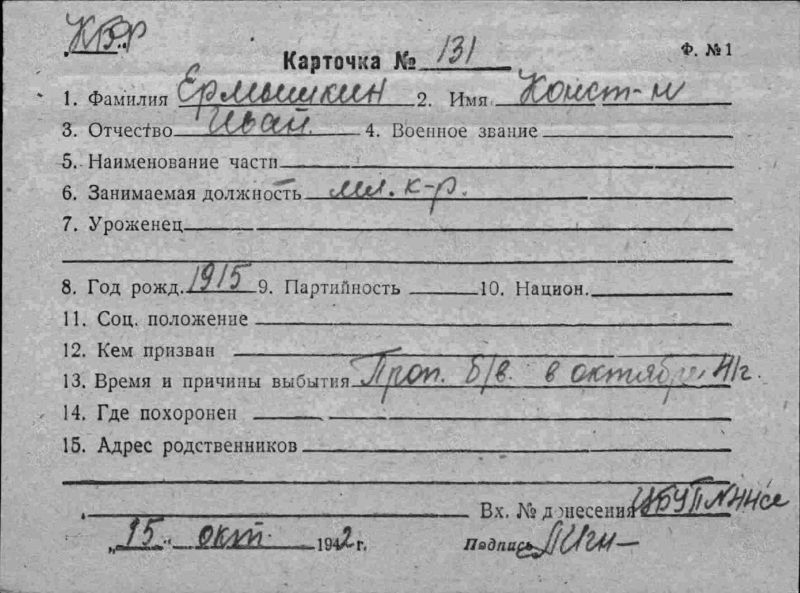 КВР
Карточка № 131 Ф. №1
1. Фамилия Ермышкин 2. Имя Конст-н
3. Отчество Иван. 4. Военное звание
5. Наименование части
6. Занимаемая должность мл. к-р.
7. Уроженец
8. Год рожд. 1915 9. Партийность 10. Национ.
11. Соц. положение
12. Кем призван
13. Время и причины выбытия Проп. б/в. в октябре 41г.
14. Где похоронен
15. Адрес родственников
Вх. № донесения
„15“ окт. 1942 г. Подпись